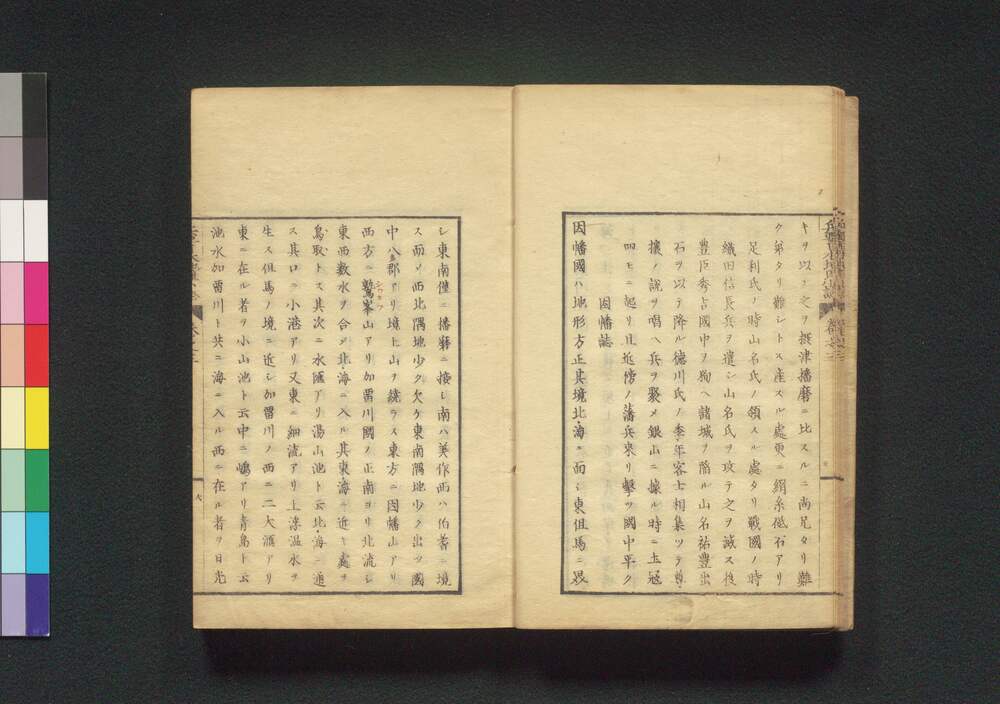 キヲ以テ之ヲ摂津播磨ニ比スルニ尚兄タリ難
ク弟タリ難シトス産スル處更ニ絹糸砥石アリ
足利氏ノ時山名氏ノ領スル處タリ戰國ノ時
織田信長兵ヲ遣シ山名氏ヲ攻テ之ヲ滅ス後
豊臣秀吉國中ヲ狥ヘ諸城ヲ陥ル山名祐豊出
石ヲ以テ降ル徳川氏ノ季年客士相集ツテ尊
攘ノ説ヲ唱ヘ兵ヲ聚メ銀山ニ據ル時ニ土冦
四モニ起リ且近傍ノ藩兵来リ撃ツ國中平ク
因幡誌
因幡國ハ地形方正其境北ハ海ニ面シ東但馬ニ界
シ東南僅ニ播磨ニ接し南ハ美作西ハ伯耆ニ境
ス而メ西北隅地少ク欠ケ東南隅地少ク出ツ國
中八郡アリ境上山ヲ繞ラス東方ニ因幡山アリ
西方ニ鷲峯山アリ加畱川國ノ正南ヨリ北流シ
東西数水ヲ合シ北海ニ入ル其東海ニ近キ處ヲ
鳥取トス其次ニ水匯アリ湯山池ト云北海ニ通
ス其口ニ小港アリ又東ニ細流アリ上淳温水ヲ
生ス但馬ノ境ニ近シ加畱川ノ西ニ二大滙アリ
東ニ在ル者ヲ小山池ト云中ニ嶋アリ青島ト云
池水加畱川ト共ニ海ニ入ル西ニ在ル者ヲ日光